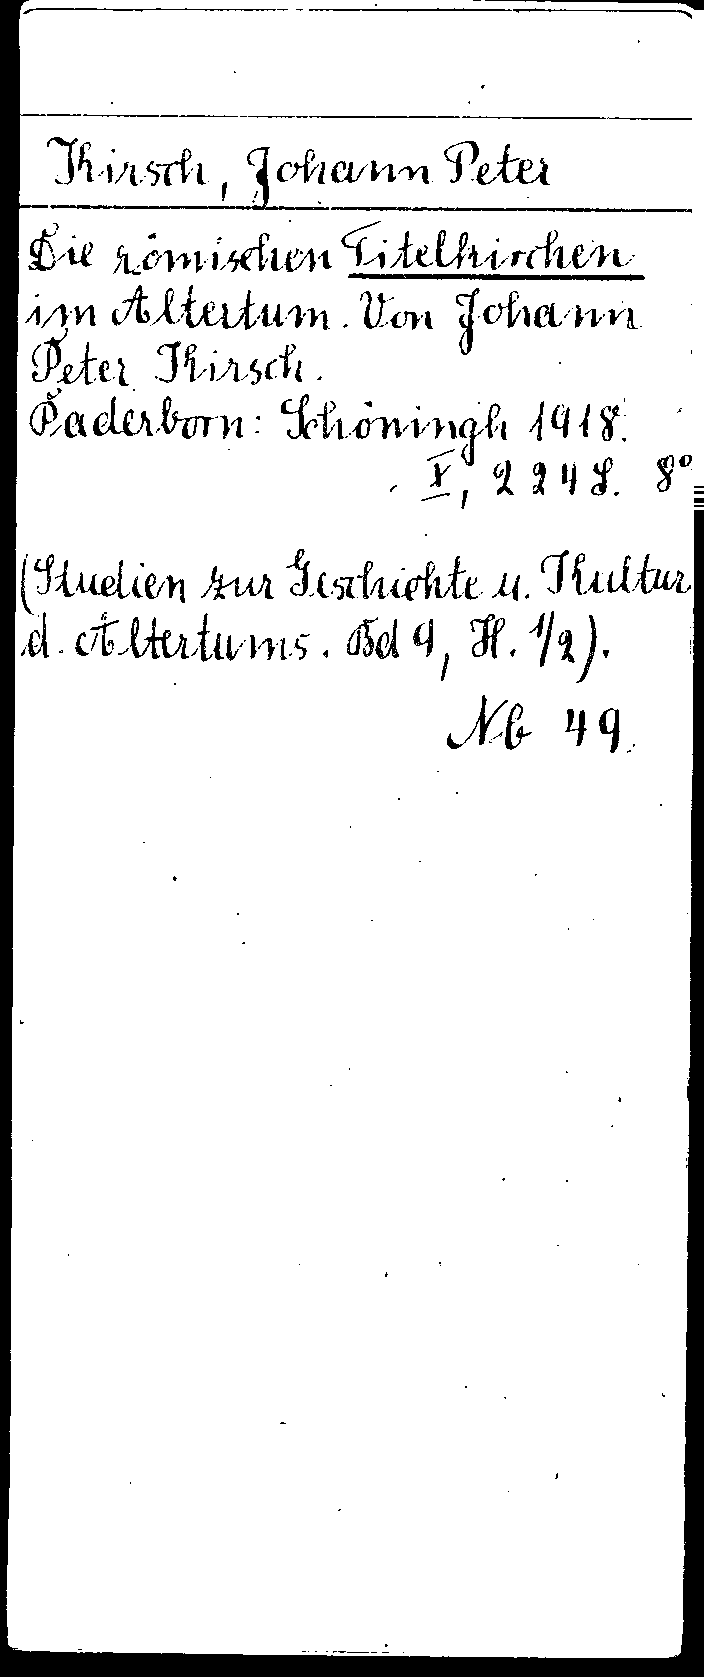 Kirsch, Johann Peter
Die römischen Titelkirchen
im Altertum. Von Johann
Peter Kirsch.
Paderborn: Schöningh 1918.
X, 224 S. 8°
(Studien zur Geschichte u. Kultur
d. Altertums. Bd 9, H. 1/2).
Nb 49